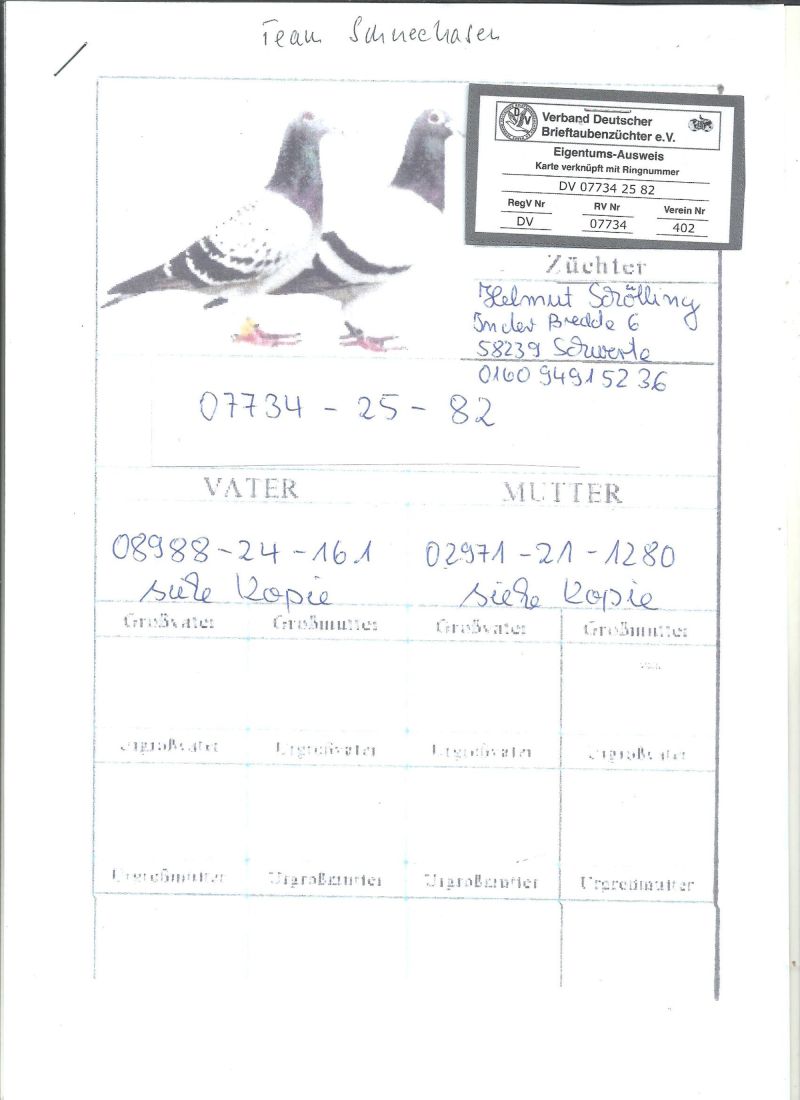 Team Schneehasen
Verband Deutscher
Brieftaubenzüchter e.V.
Eigentums-Ausweis
Karte verknüpft mit Ringnummer
DV 07734 25 82
RegV Nr RV Nr Verein Nr
DV 07734 402
Züchter
Helmut Schölling
In der Bredde 6
58239 Schwerte
0160 94915236
07734 - 25 - 82
VATER MUTTER
08988-24-161 02971-21-1280
siehe Kopie siehe Kopie
Großvater Großmutter Großvater Großmutter
Urgroßvater Urgroßvater Urgroßvater Urgroßvater
Urgroßmutter Urgroßmutter Urgroßmutter Urgroßmutter